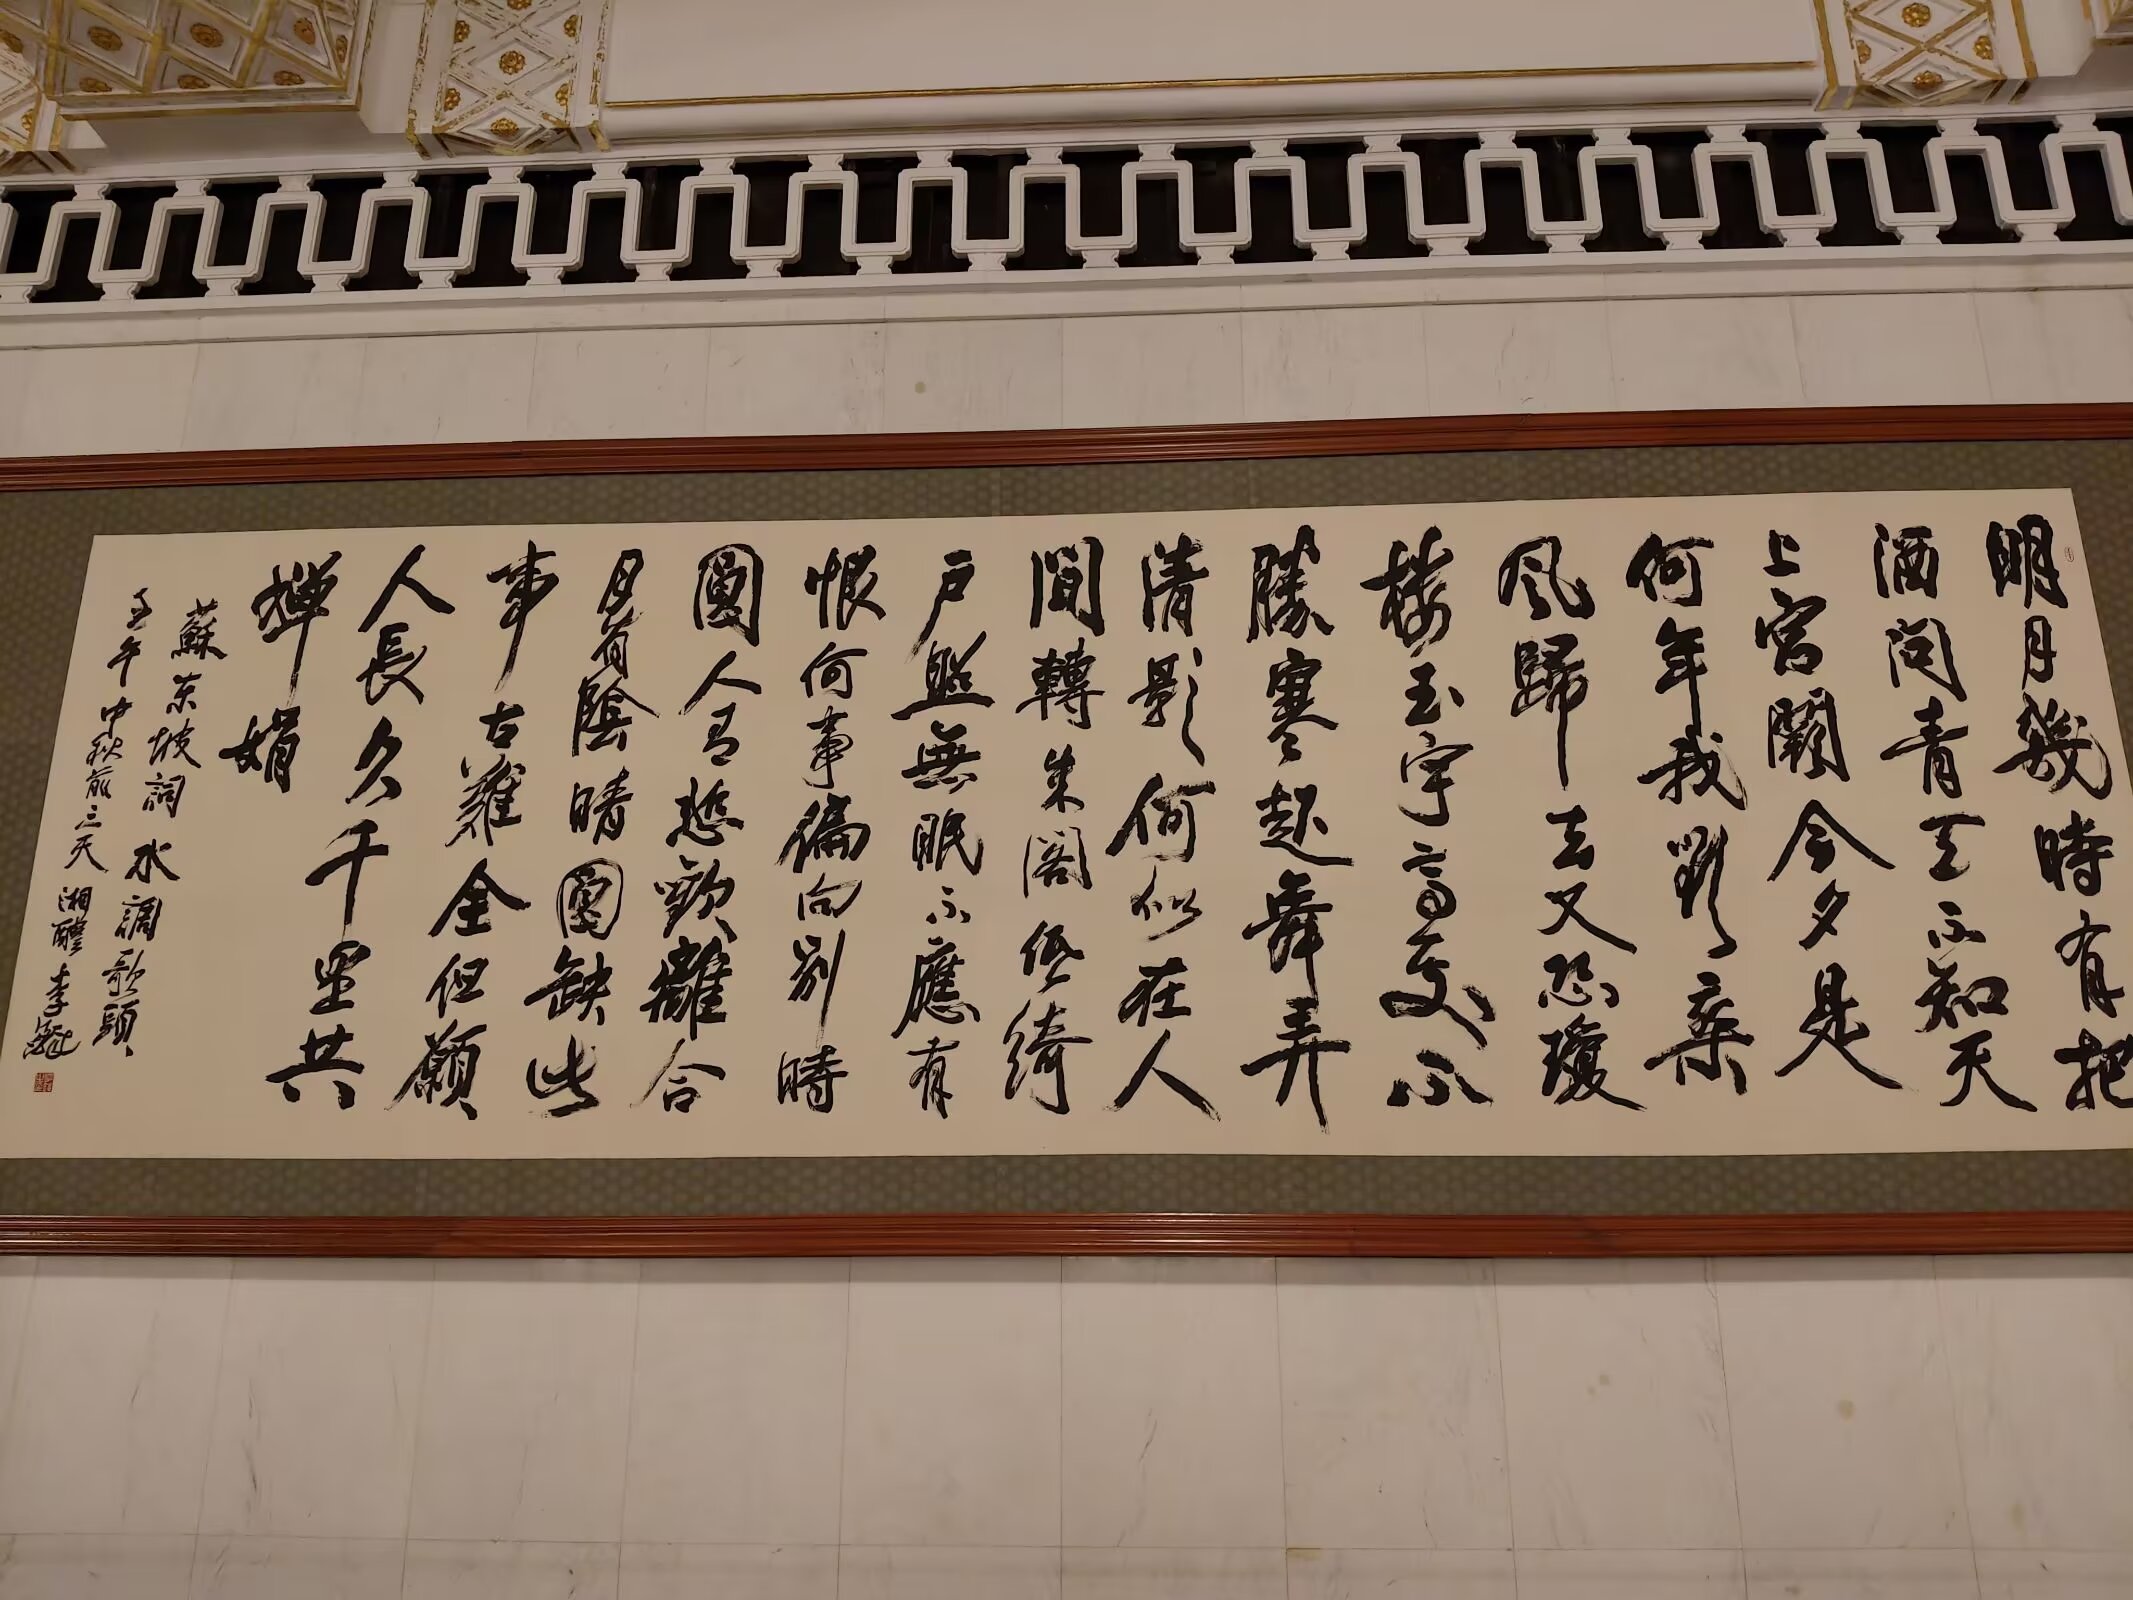 明月幾時有把
酒問青天不知天
上宮闕今夕是
何年我欲乘
风歸去又恐瓊
楼玉宇高處不
勝寒起舞弄
清影何似在人
間轉朱閣低綺
户照無眠不應有
恨何事偏向别時
圓人有悲歡離合
月有陰晴圓缺此
事古難全但願
人長久千里共
嬋娟
蘇东坡詞水調歌頭
壬午中秋前三天湘醴李鐸